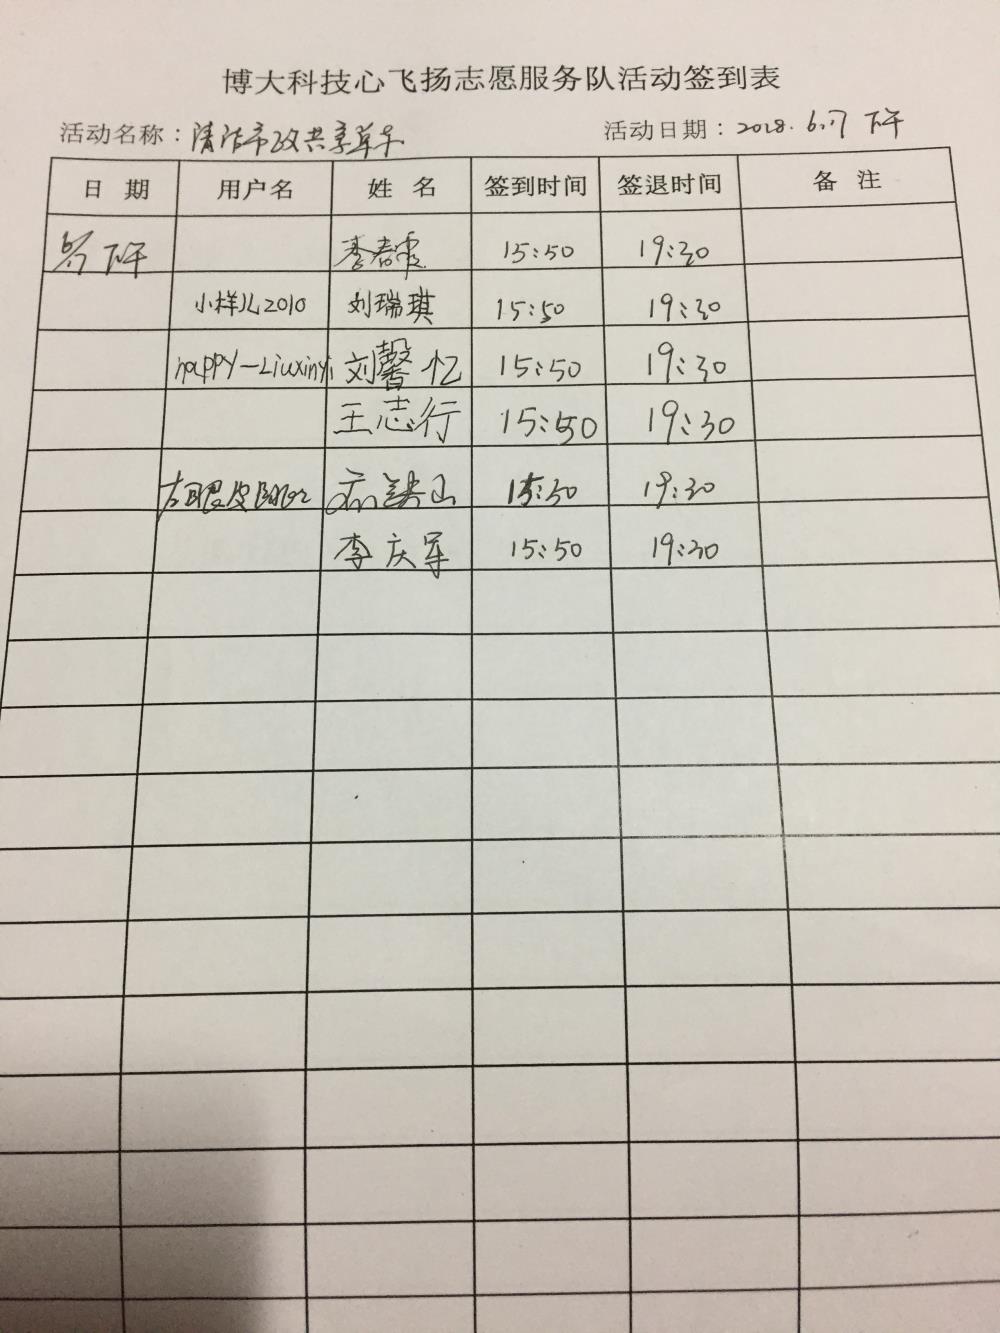 博大科技心飞扬志愿服务队活动签到表
活动名称：清洁市政共享单车 活动日期：2018.6.17 下午
日期 用户名 姓名 签到时间 签退时间 备注
下午 李春霞 15:50 19:30
小样儿2010 刘瑞琪 15:50 19:30
happy-Liuxinyi 刘馨忆 15:50 19:30
王志行 15:50 19:30
左眼皮 山 15:30 19:30
李庆军 15:50 19:30